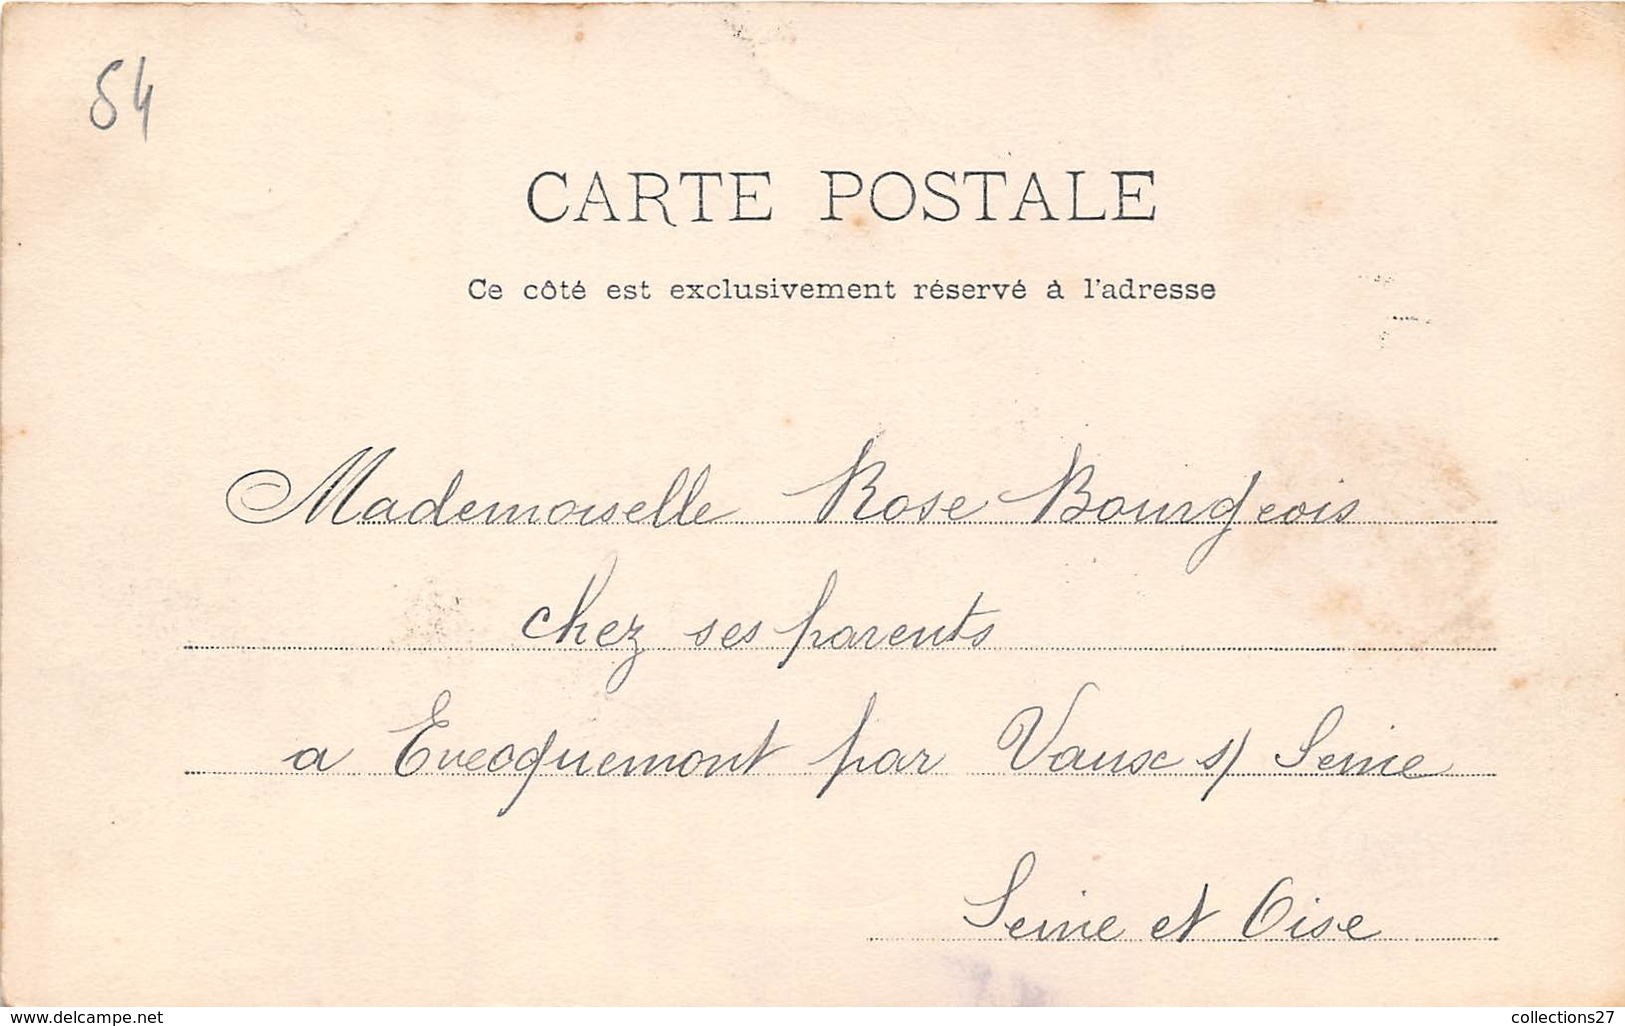 54
CARTE POSTALE
Ce côté est exclusivement réservé à l'adresse
Mademoiselle Rose Bourgeois
chez ses parents
a Evecquemont par Vaux s/ Seine
Seine et Oise
www.delcampe.net
collections27